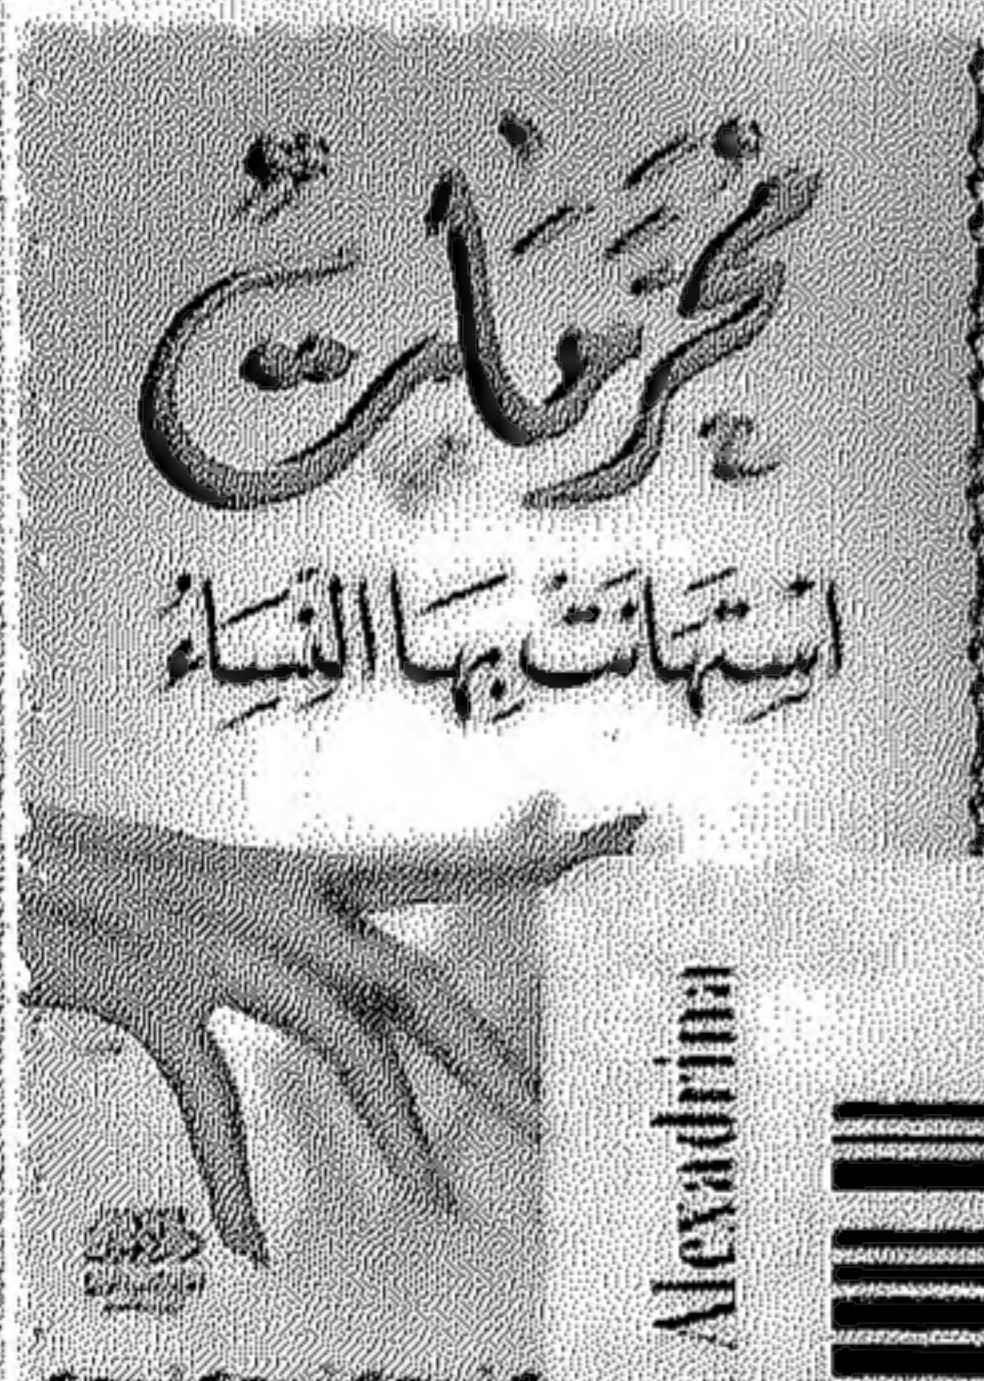 مُحَرَّمَاتٌ
اسْتَهَانَتْ بِهَا النِّسَاءُ
Alexadrina